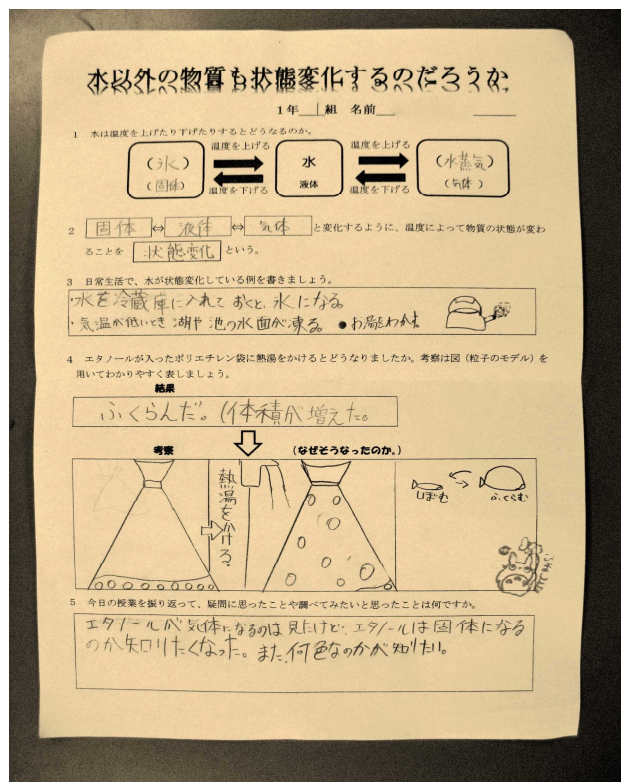 水以外の物質も状態変化するのだろうか
1年 1組 名前
1 水は温度を上げたり下げたりするとどうなるのか。
(氷)
(固体)
温度を上げる
温度を下げる
水
液体
温度を上げる
温度を下げる
(水蒸気)
(気体)
2 固体 ⇔ 液体 ⇔ 気体 と変化するように、温度によって物質の状態が変わ
ることを 状態変化 という。
3 日常生活で、水が状態変化している例を書きましょう。
・水を冷蔵庫に入れておくと、氷になる。
・気温が低いとき湖や池の水面が凍る。 ●お湯をわかす
4 エタノールが入ったポリエチレン袋に熱湯をかけるとどうなりましたか。考察は図(粒子のモデル)を
用いてわかりやすく表しましょう。
結果
ふくらんだ。(体積が増えた。
考察 (なぜそうなったのか。)
熱湯をかける
しぼむ
ふくらむ
5 今日の授業を振り返って、疑問に思ったことや調べてみたいと思ったことは何ですか。
エタノールが気体になるのは見たけど、エタノールは固体になる
のか知りたくなった。また、何色なのかが知りたい。